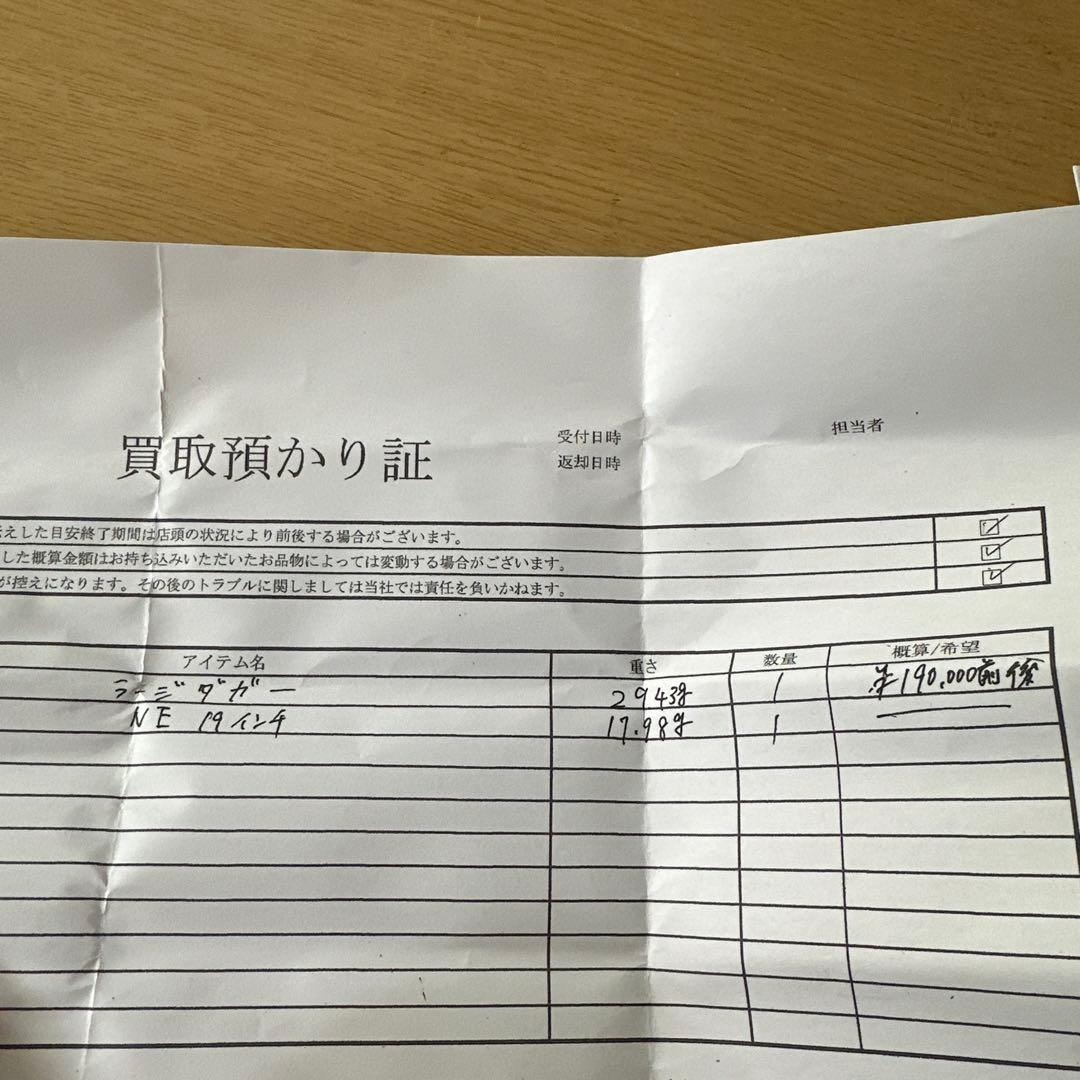 買取預かり証
受付日時
返却日時
担当者
えした目安終了期間は店頭の状況により前後する場合がございます。
した概算金額はお持ち込みいただいたお品物によっては変動する場合がございます。
が控えになります。その後のトラブルに関しましては当社では責任を負いかねます。
アイテム名 重さ 数量 概算/希望
ラージダガー 29.43g 1 ¥190,000前後
NE 19インチ 17.98g 1